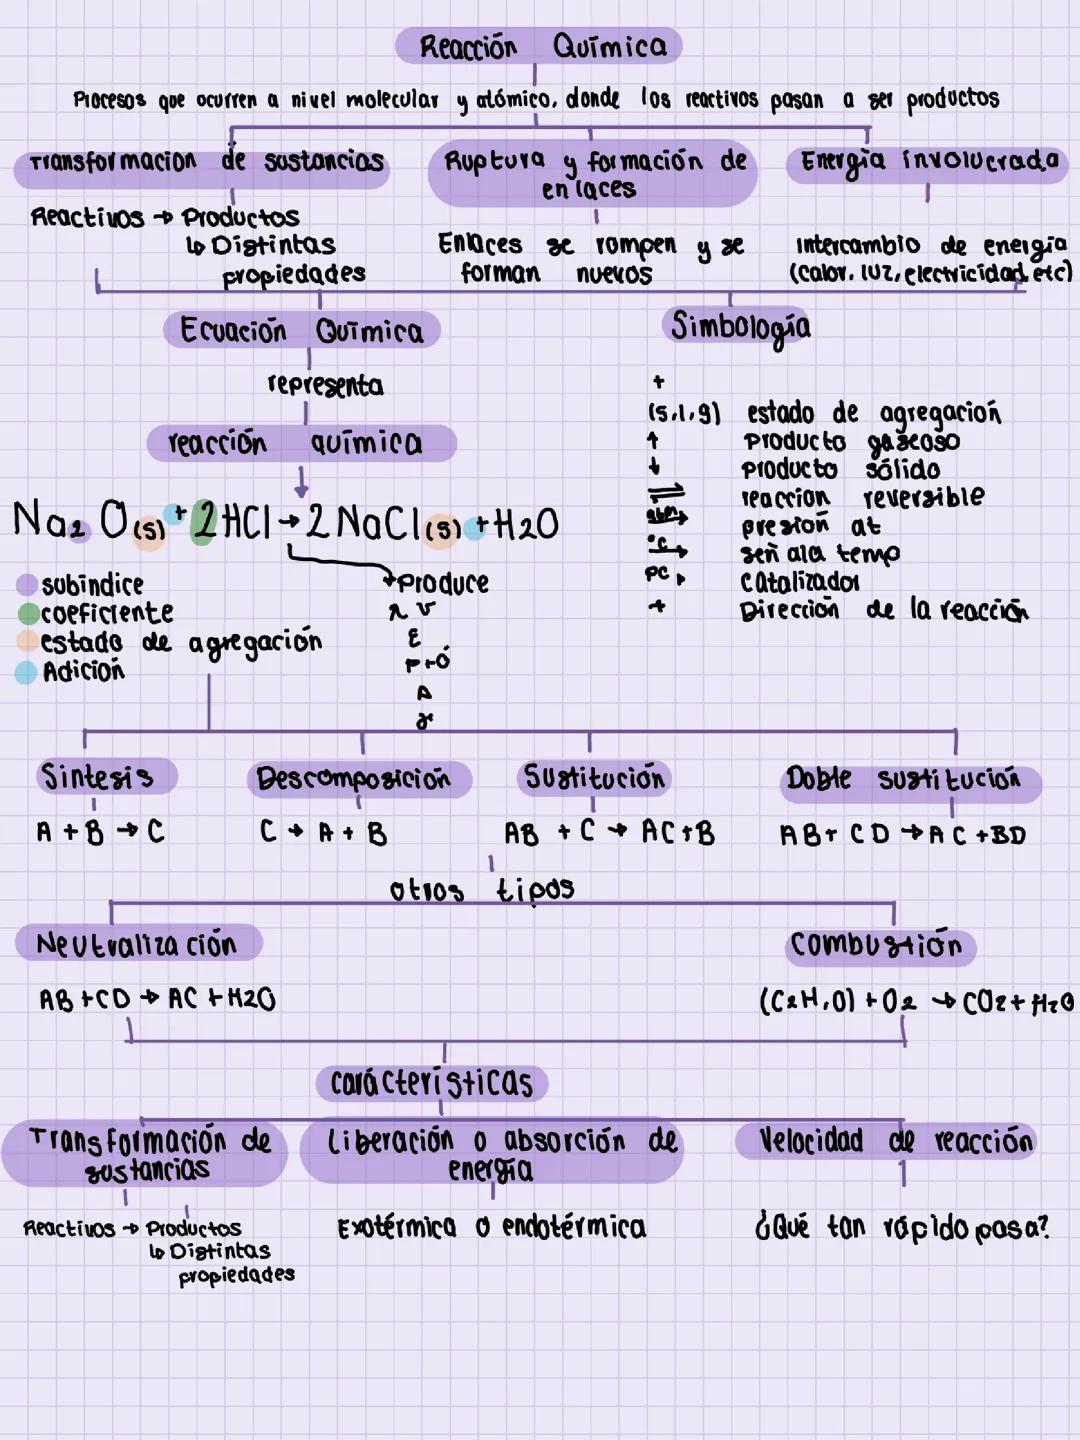 Reacción Química
Procesos que ocurren a nivel molecular y atómico, donde los reactivos pasan a ser productos
Transformacion de sustancias
Reactivos → Productos
↳ Distintas
propiedades
Ruptura y formación de
enlaces
Enlaces se rompen y se
forman nuevos
Energía involucrada
Intercambio de energia
(calor, luz, electricidad, etc)
Ecuación Química
representa
reacción química
Na₂ O(s) + 2HCl → 2 NaCl(s) + H2O
produce
subindice
coeficiente
estado de agregación
Adición
r v
E
P r ó
A
Simbología
+
(s,l,g) estado de agregación
↑ Producto gaseoso
↓ producto sólido
⇌ reaccion reversible
atm→ presión at
°C→ señala temp
PC catalizador
→ Dirección de la reacción
Sintesis
A + B → C
Descomposición
C → A + B
Sustitución
AB + C → AC + B
Doble sustitución
AB + CD → AC + BD
otros tipos
Neutralización
AB + CD → AC + H2O
Combustión
(C₂H,O) + O₂ → CO₂ + H₂O
carácterísticas
Transformación de
sustancias
Reactivos → Productos
↳ Distintas
propiedades
Liberación o absorción de
energía
Exotérmica o endotérmica
Velocidad de reacción
¿Qué tan rápido pasa?